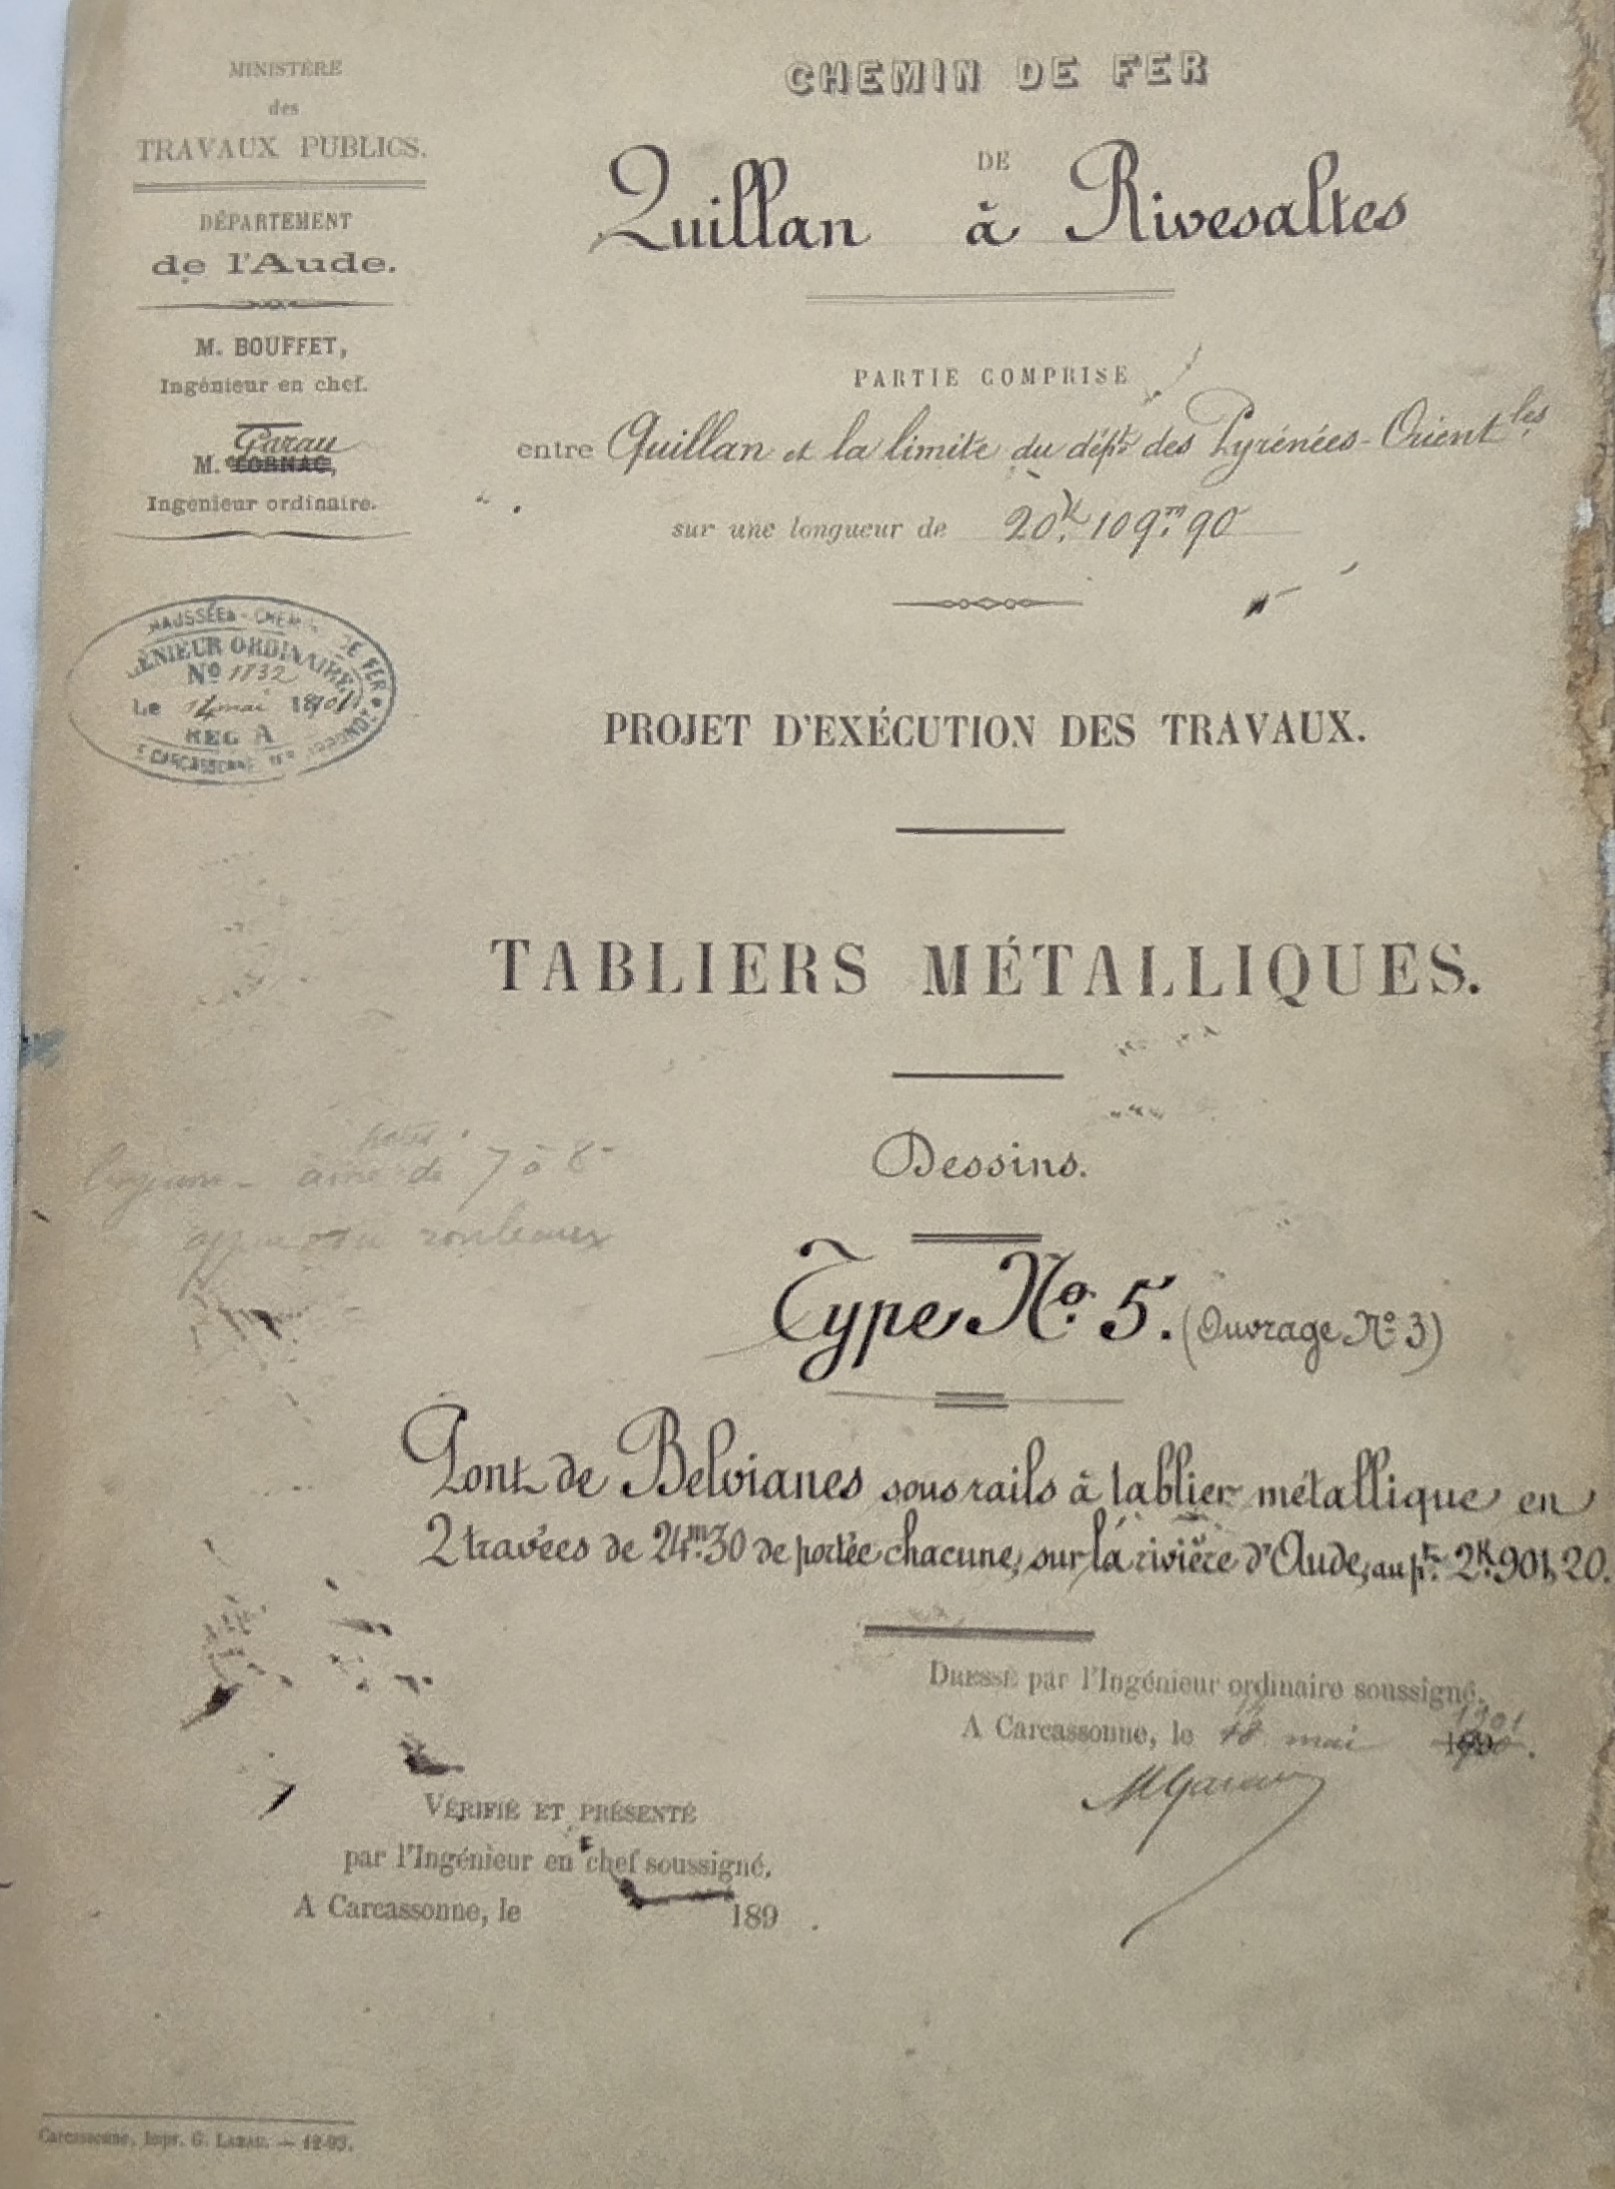 MINISTÈRE
des
TRAVAUX PUBLICS.
DÉPARTEMENT
de l'Aude.
M. BOUFFET,
Ingénieur en chef.
Garau
M. CORNAC,
Ingénieur ordinaire.
CHAUSSÉES - CHEMINS DE FER
INGÉNIEUR ORDINAIRE
No 1132
Le 14 mai 1901
REG A
CARCASSONNE
CHEMIN DE FER
DE
Quillan à Rivesaltes
PARTIE COMPRISE
entre Quillan et la limite du dépt. des Pyrénées-Orientles
sur une longueur de 20k,109m,90
PROJET D'EXÉCUTION DES TRAVAUX.
TABLIERS MÉTALLIQUES.
Dessins.
de 7 à 8
rouleaux
Type No. 5. (Ouvrage No 3)
Pont de Belvianes sous rails à tablier métallique en
2 travées de 24m.30 de portée chacune, sur la rivière d'Aude, au pt. 2K.901,20.
DRESSÉ par l'Ingénieur ordinaire soussigné.
A Carcassonne, le 18 mai 1901
MGarau
VÉRIFIÉ ET PRÉSENTÉ
par l'Ingénieur en chef soussigné.
A Carcassonne, le 189 .
Carcassonne, Impr. G. LABAU. — 12-93.